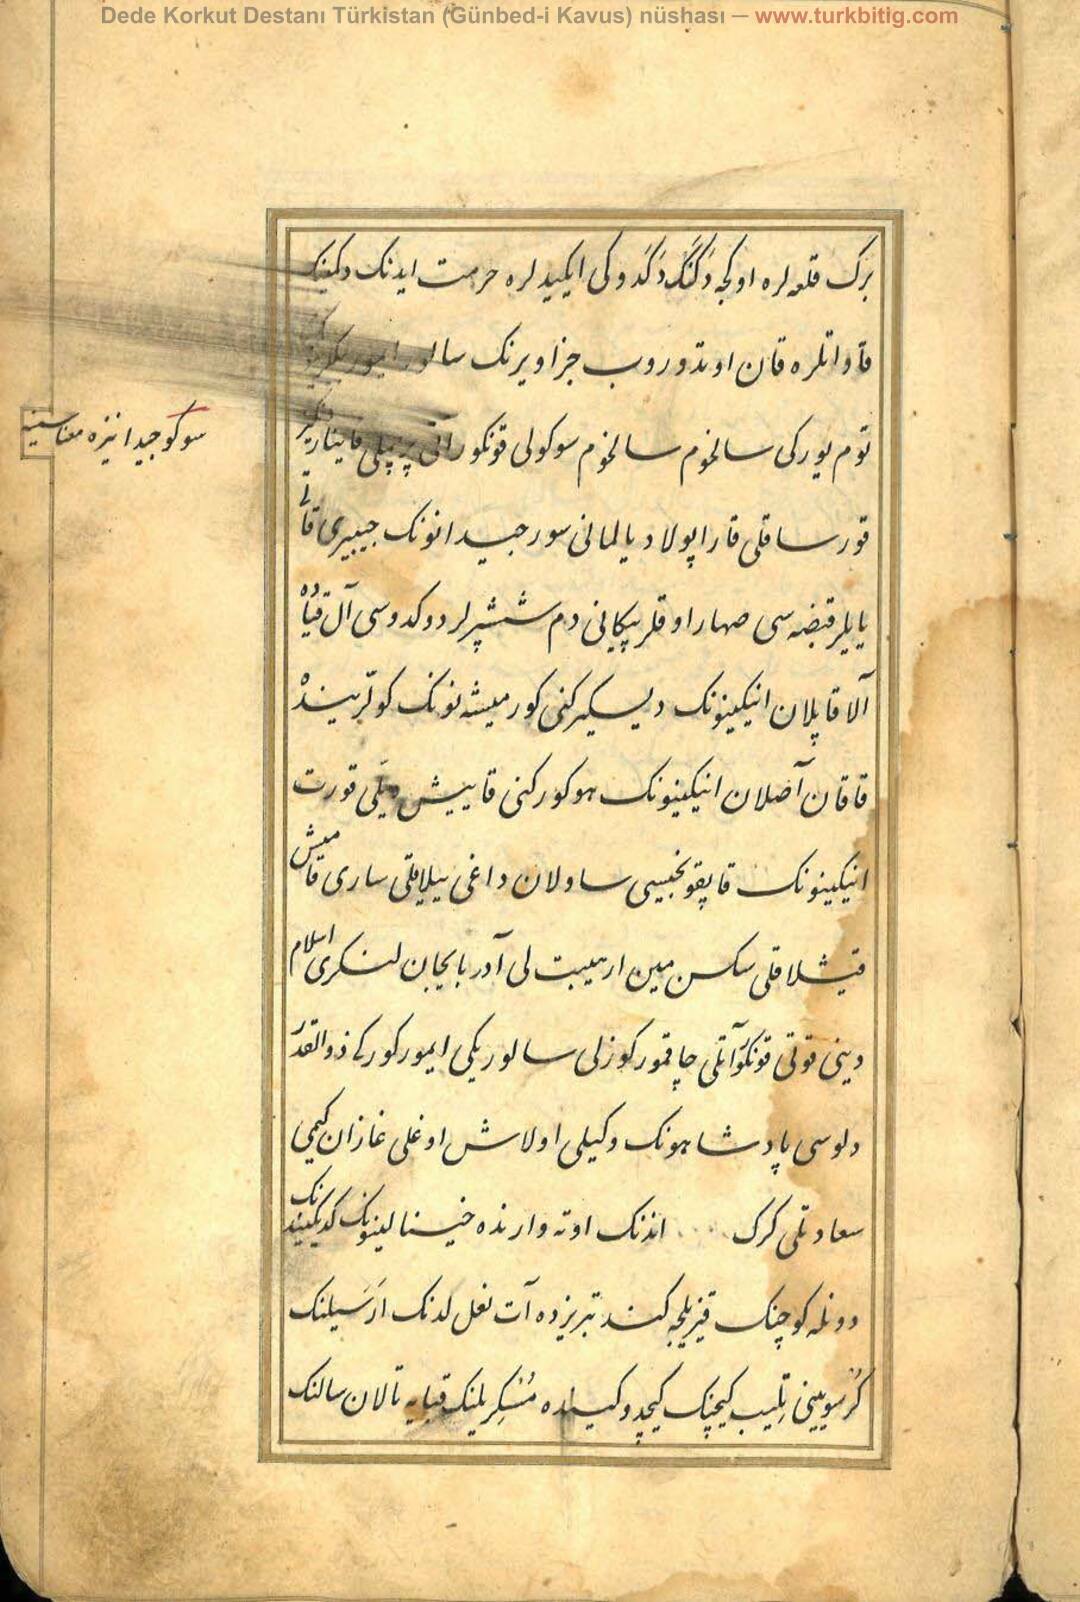 Dede Korkut Destanı Türkistan (Günbed-i Kavus) nüshası — www.turkbitig.com
برک قلعه لره اوکجه دکنک دکدوکی ایکیدلره حرمت ایدنک دکینک
قاواتلره قان اوتدوروب جزا ویرنک سالور ایمور
توم یورکی سالخوم سالخوم سوکولی قونکورالی پرپیلی قاینار
سوکو جیدا نیزه معناسینه
قورساقلی قارا پولاد یالمانی سور جیدانونک جیبیری قاتی
یایلر قبضه سی صهار اوقلر پیکانی دم ششپرلر دوکدوسی آل قیاده
آلا قاپلان انیکینونک دیسکیرکنی کور میشه نونک کولربینده
قاقان آصلان انیکینونک هوکورکنی قاییش بیلی قورت
انیکینونک قاپقونجیسی ساولان داغی ییلاقلی ساری قامیش
قیشلاقلی سکسن مین ار هیبت لی آدربایجان لنکری اسلام
دینی قوتی قونکور آتلی چاقمور کوزلی سالور بکی ایمور کورکی ذوالقدر
دلوسی پادشاهونک وکیلی اولاش اوغلی غازان کیمی
سعادتلی کرک اندنک اوته وارنده خینالینونک کدیکیندنک
دونله کوچنک قیزیلجه کند تبریزده آت نعل لدنک ارسیلنک
کر سویینی تلیب کیچنک کیچد وکیلده منکریلنک قیایه تالان سالنک